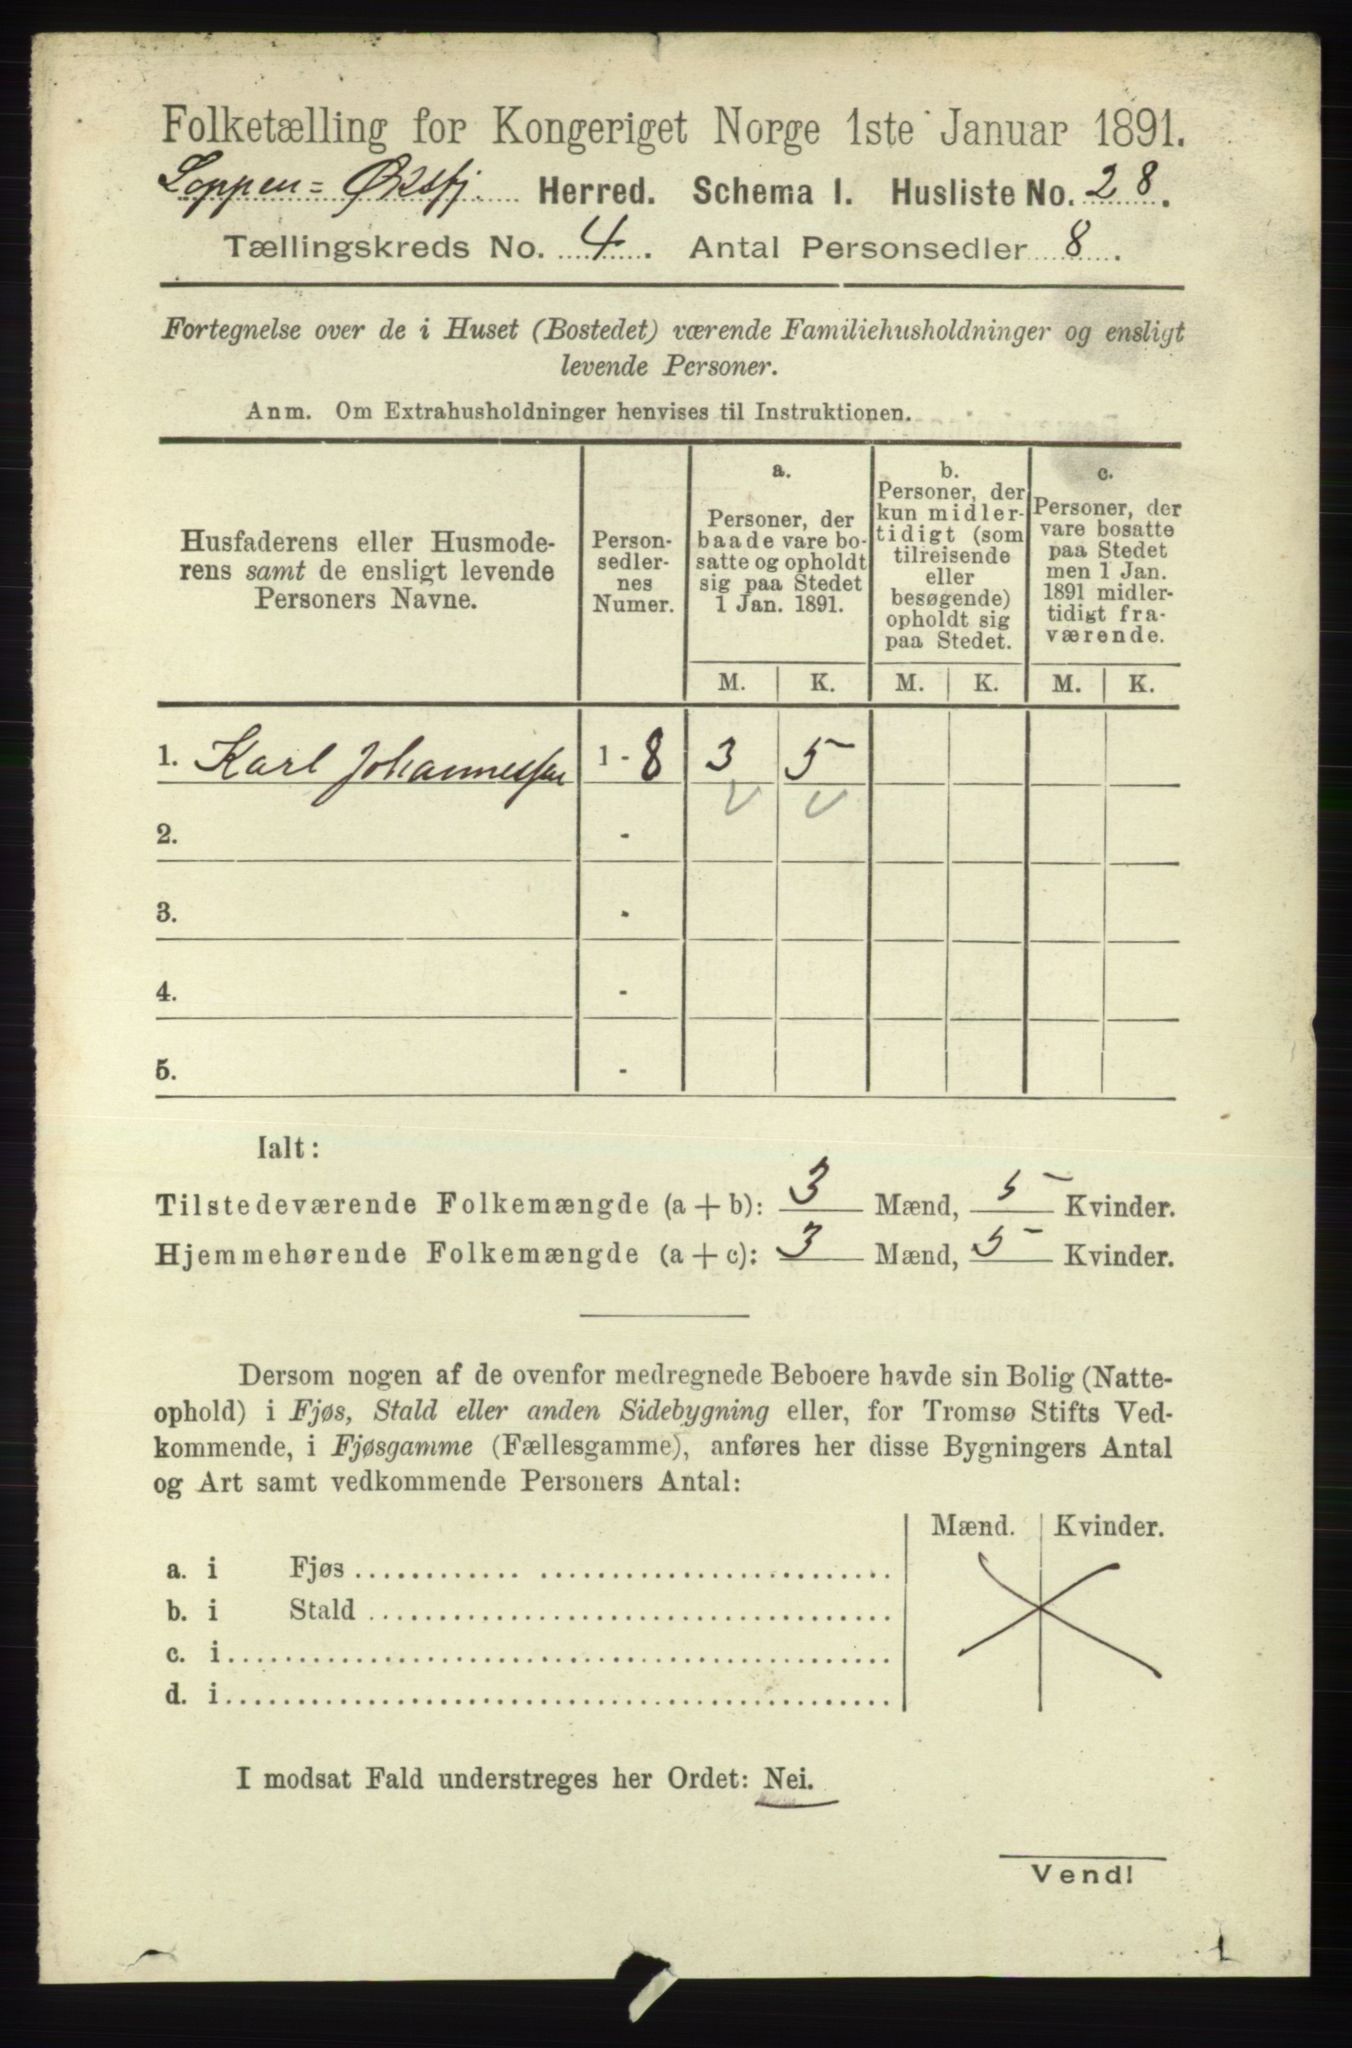 Folketælling for Kongeriget Norge 1ste Januar 1891.
Loppen = Øksfj. Herred. Schema I. Husliste No. 28.
Tællingskreds No. 4. Antal Personsedler 8.
Fortegnelse over de i Huset (Bostedet) værende Familiehusholdninger og ensligt
levende Personer.
Anm. Om Extrahusholdninger henvises til Instruktionen.
Husfaderens eller Husmode-
rens samt de ensligt levende
Personers Navne.
Person-
sedler-
nes
Numer.
a.
Personer, der
baade vare bo-
satte og opholdt
sig paa Stedet
1 Jan. 1891.
b.
Personer, der
kun midler-
tidigt (som
tilreisende
eller
besøgende)
opholdt sig
paa Stedet.
c.
Personer, der
vare bosatte
paa Stedet
men 1 Jan.
1891 midler-
tidigt fra-
værende.
M. K. M. K. M. K.
1. Karl Johannessen 1 - 8 3 5
2. -
3. -
4. -
5. -
Ialt:
Tilstedeværende Folkemængde (a + b): 3 Mænd, 5 Kvinder.
Hjemmehørende Folkemængde (a + c): 3 Mænd, 5 Kvinder.
Dersom nogen af de ovenfor medregnede Beboere havde sin Bolig (Natte-
ophold) i Fjøs, Stald eller anden Sidebygning eller, for Tromsø Stifts Ved-
kommende, i Fjøsgamme (Fællesgamme), anføres her disse Bygningers Antal
og Art samt vedkommende Personers Antal:
Mænd. Kvinder.
a. i Fjøs
b. i Stald
c. i
d. i
I modsat Fald understreges her Ordet: Nei.
Vend!